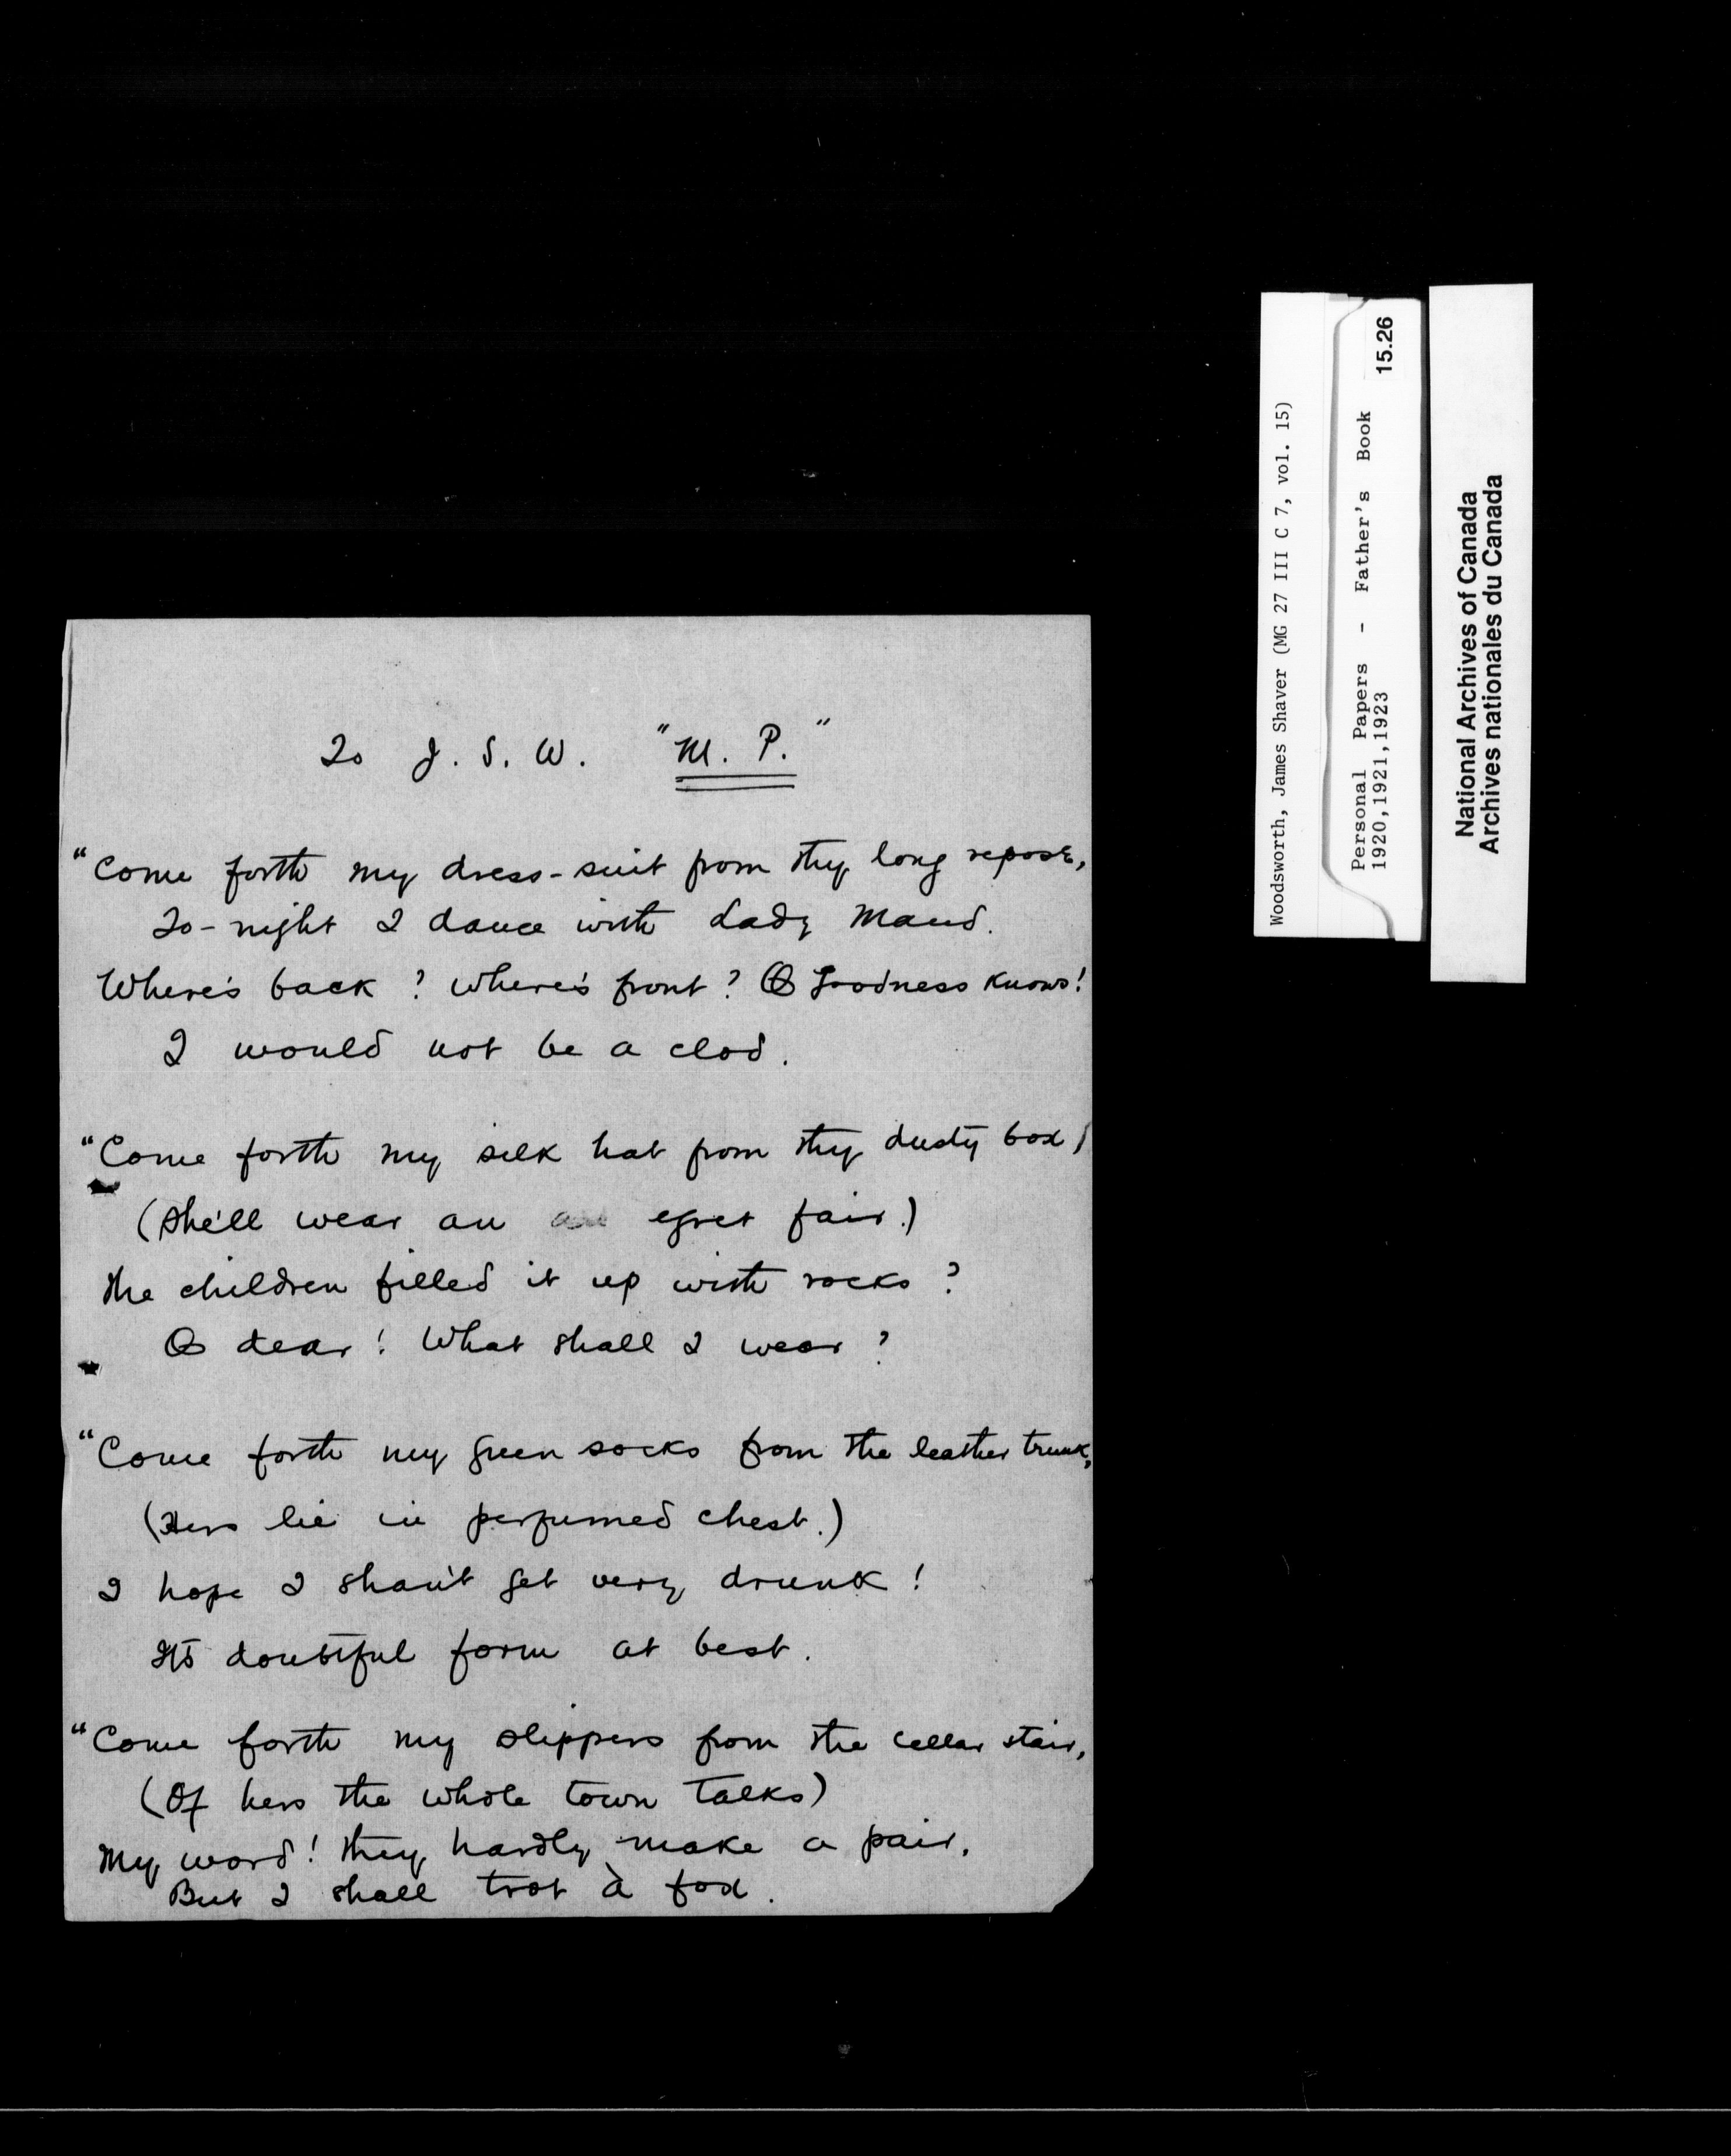 To J. S. W. "M. P."
"Come forth my dress-suit from thy long repose,
To-night I dance with Lady Maud.
Where's back? Where's front? O Goodness knows!
I would not be a clod.
"Come forth my silk hat from thy dusty box,
(She'll wear an egret fair.)
The children filled it up with rocks?
O dear! What shall I wear?
"Come forth my green socks from the leather trunk,
(Hers lie in perfumed chest.)
I hope I shan't get very drunk!
It's doubtful form at best.
"Come forth my slippers from the cellar stair,
(Of hers the whole town talks)
My word! they hardly make a pair,
But I shall trot à fox.
Woodsworth, James Shaver (MG 27 III C 7, vol. 15)
Personal Papers - Father's Book
1920,1921,1923
15.26
National Archives of Canada
Archives nationales du Canada